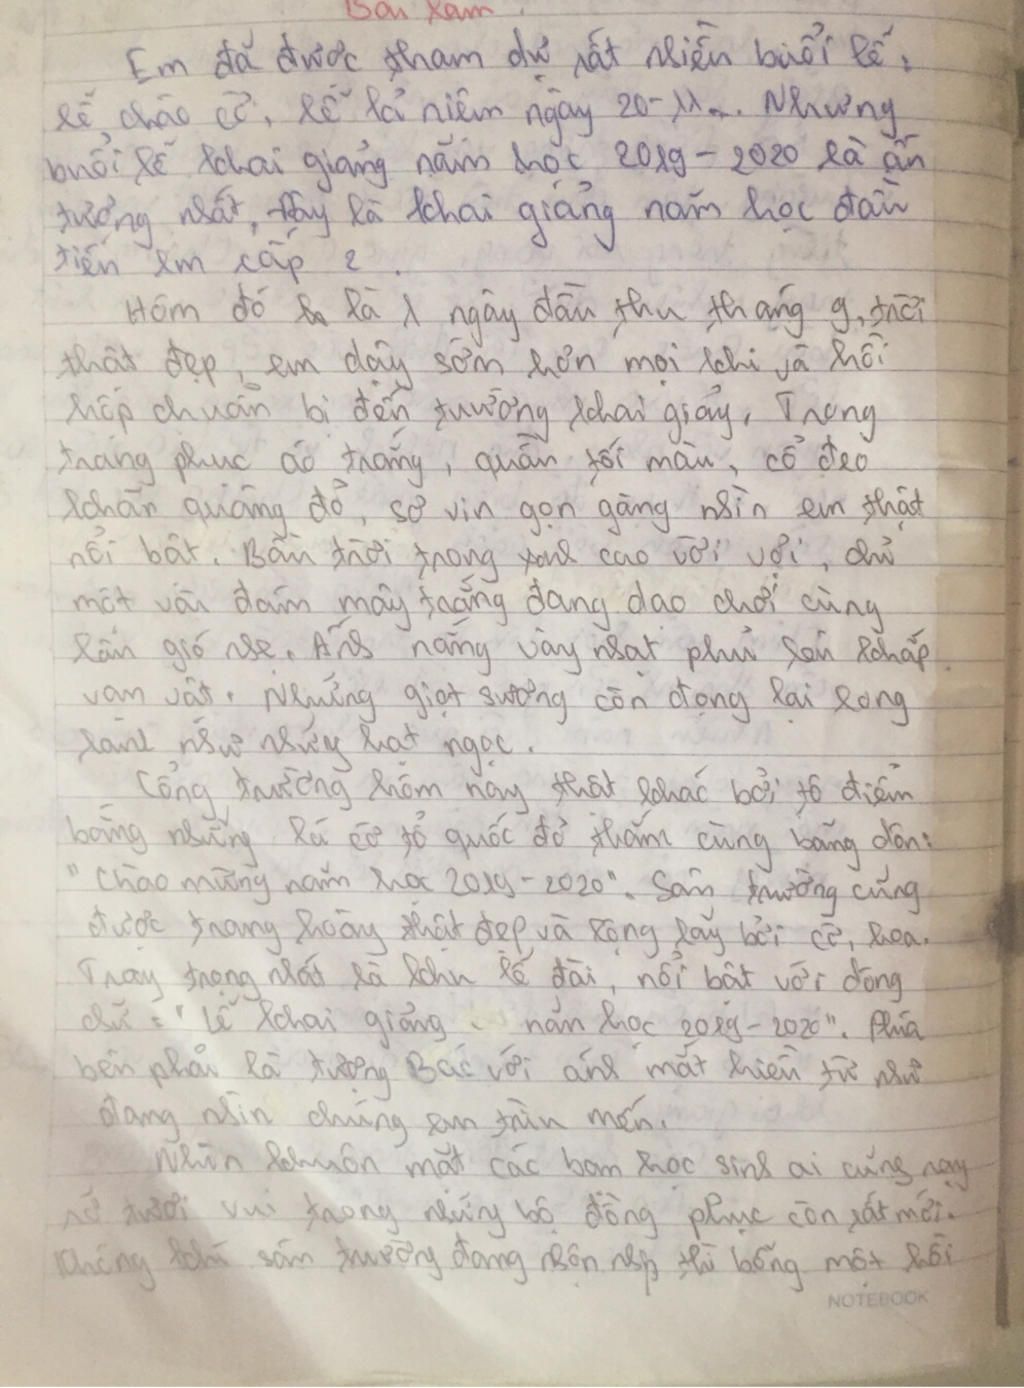 Bài làm.
Em đã được tham dự rất nhiều buổi lễ,
lễ chào cờ, lễ kỉ niệm ngày 20-11... Nhưng
buổi lễ khai giảng năm học 2019-2020 là ấn
tượng nhất, đây là khai giảng năm học đầu
tiên em cấp 2.
Hôm đó là 1 ngày đầu thu tháng 9, trời
thật đẹp, em dậy sớm hơn mọi khi và hồi
hộp chuẩn bị đến trường khai giảng. Trong
trang phục áo trắng, quần tối màu, cổ đeo
khăn quàng đỏ, sơ vin gọn gàng nhìn em thật
nổi bật. Bầu trời trong xanh cao vời vợi, chỉ
một vài đám mây trắng đang dạo chơi cùng
làn gió nhẹ. Ánh nắng vàng nhạt phủ lên khắp
vạn vật. Những giọt sương còn đọng lại long
lanh như những hạt ngọc.
Cổng trường hôm nay thật khác bởi tô điểm
bằng những lá cờ tổ quốc đỏ thắm cùng băng dôn:
"Chào mừng năm học 2019-2020". Sân trường cũng
được trang hoàng thật đẹp và lộng lẫy bởi cờ, hoa.
Trang trọng nhất là khu lễ đài, nổi bật với dòng
chữ: "Lễ khai giảng năm học 2019-2020". Phía
bên phải là tượng Bác với ánh mắt hiền từ như
đang nhìn chúng em trìu mến.
Nhìn khuôn mặt các bạn học sinh ai cũng rạng
rỡ tươi vui trong những bộ đồng phục còn rất mới.
Không khí sân trường đang nhộn nhịp thì bỗng một hồi
NOTEBOOK